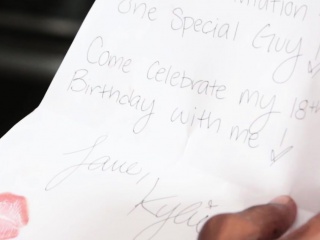 One Special Guy!
Come Celebrate my 18th
Birthday with me!
Love,
Kylie